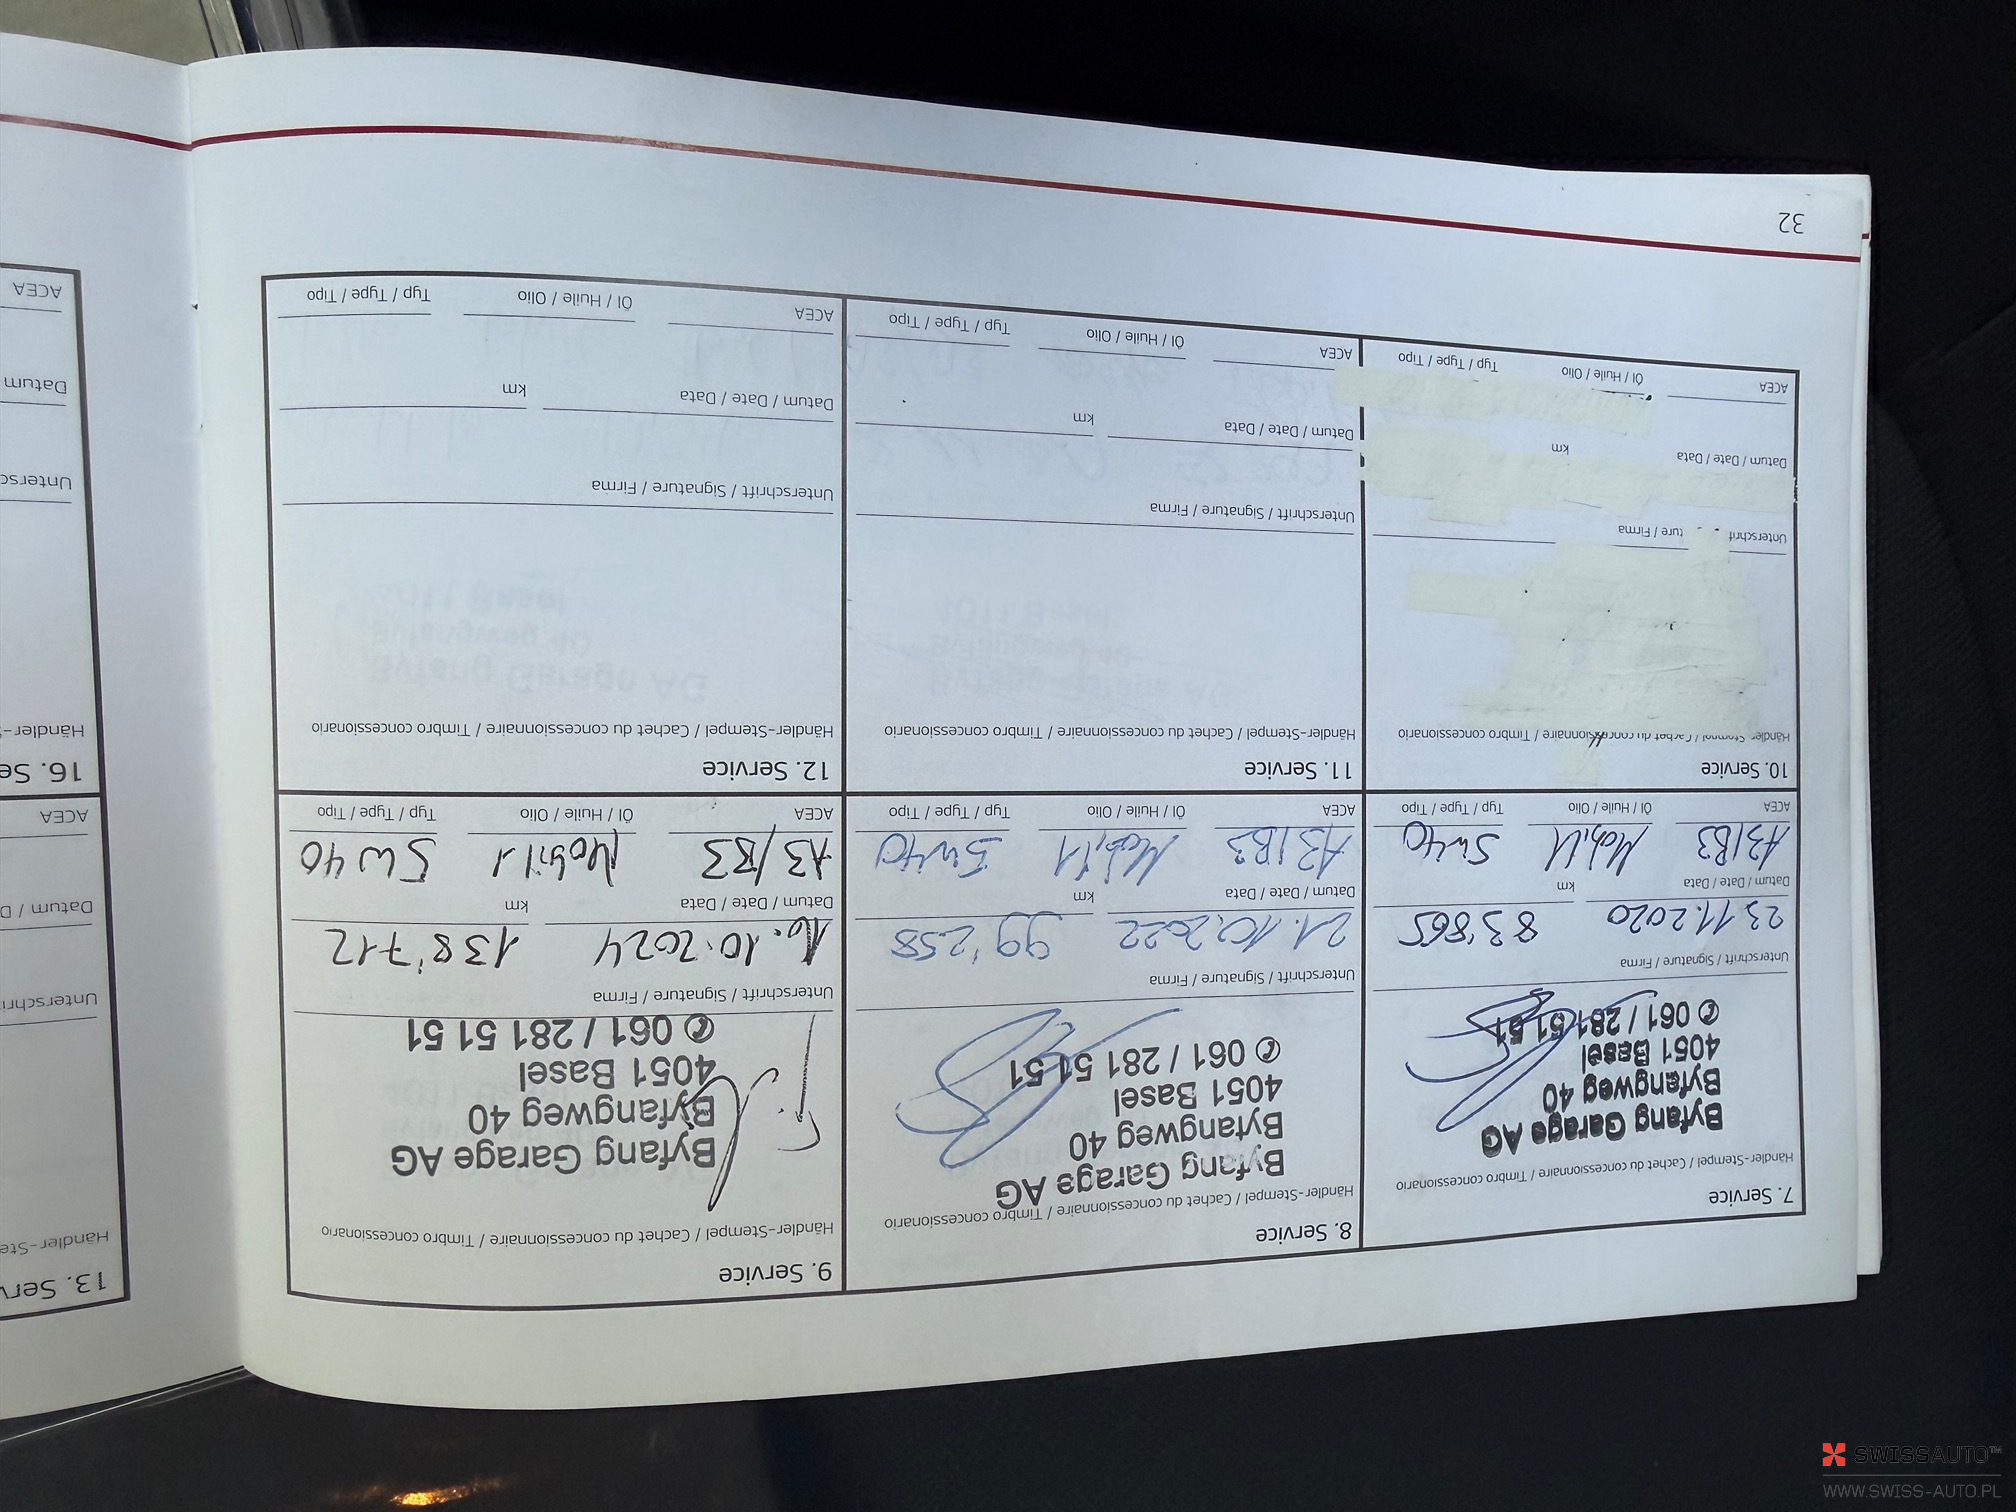 7. Service
Händler-Stempel / Cachet du concessionnaire / Timbro concessionario
Byfang Garage AG
Byfangweg 40
4051 Basel
✆ 061 / 281 51 51
Unterschrift / Signature / Firma
23.11.2020 83'865
Datum / Date / Data km
A3/B3 Mobil1 5w40
ACEA Öl / Huile / Olio Typ / Type / Tipo
8. Service
Händler-Stempel / Cachet du concessionnaire / Timbro concessionario
Byfang Garage AG
Byfangweg 40
4051 Basel
✆ 061 / 281 51 51
Unterschrift / Signature / Firma
21.10.2022 99'258
Datum / Date / Data km
A3/B3 Mobil1 5w40
ACEA Öl / Huile / Olio Typ / Type / Tipo
9. Service
Händler-Stempel / Cachet du concessionnaire / Timbro concessionario
Byfang Garage AG
Byfangweg 40
4051 Basel
✆ 061 / 281 51 51
Unterschrift / Signature / Firma
10.10.2024 138'712
Datum / Date / Data km
A3/B3 Mobil 1 5W40
ACEA Öl / Huile / Olio Typ / Type / Tipo
10. Service
Händler Cachet du concessionnaire / Timbro concessionario
Unterschrif ture / Firma
Datum / Date / Data km
ACEA Öl / Huile / Olio Typ / Type / Tipo
11. Service
Händler-Stempel / Cachet du concessionnaire / Timbro concessionario
Unterschrift / Signature / Firma
Datum / Date / Data km
ACEA Öl / Huile / Olio Typ / Type / Tipo
12. Service
Händler-Stempel / Cachet du concessionnaire / Timbro concessionario
Unterschrift / Signature / Firma
Datum / Date / Data km
ACEA Öl / Huile / Olio Typ / Type / Tipo
32
13. Serv
Händler-Ste
Unterschri
Datum / D
ACEA
16. Se
Händler-
Untersc
Datum
ACEA
SWISSAUTO™
WWW.SWISS-AUTO.PL